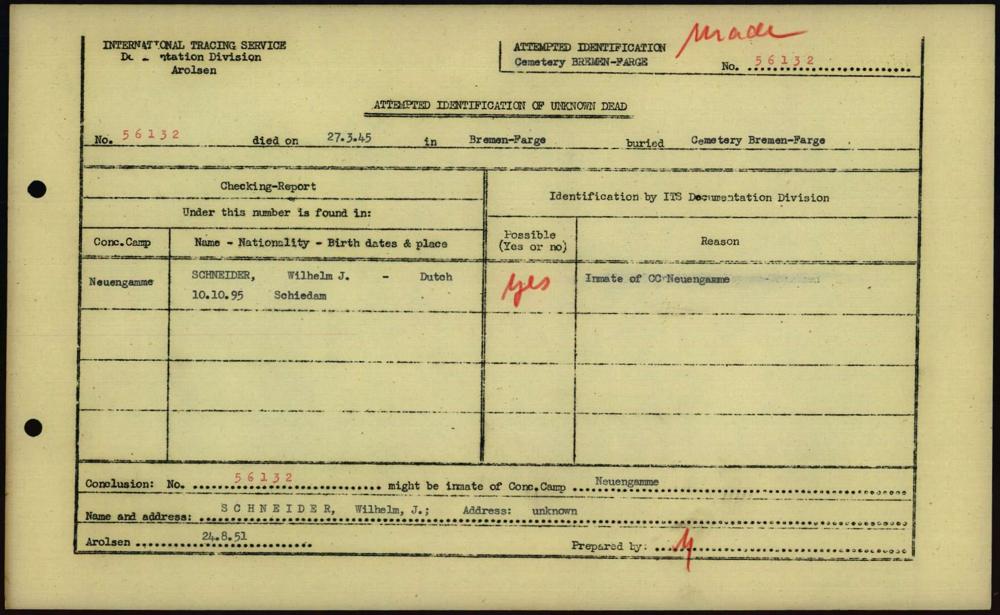 INTERNATIONAL TRACING SERVICE
Arolsen
ATTEMPTED IDENTIFICATION
Cemetery BREMEN-FARGE
made
No. 56132
ATTEMPTED IDENTIFICATION OF UNKNOWN DEAD
No. 56132 died on 27.3.45 in Bremen-Farge buried Cemetery Bremen-Farge
Checking-Report
Identification by ITS Documentation Division
Under this number is found in:
Conc.Camp Name - Nationality - Birth dates & place
Possible
(Yes or no)
Reason
Neuengamme
SCHNEIDER, Wilhelm J. - Dutch
10.10.95 Schiedam
yes
Inmate of CC Neuengamme
Conclusion: No. 56132 might be inmate of Conc.Camp Neuengamme
Name and address: SCHNEIDER, Wilhelm, J.; Address: unknown
Arolsen 24.8.51 Prepared by: